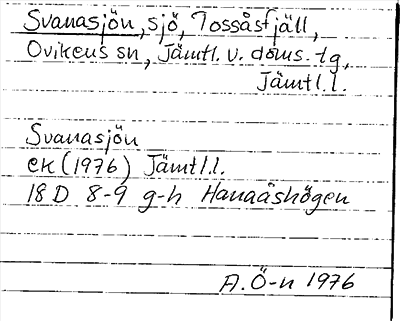 Svanasjön, sjö, Tossåsfjäll,
Ovikens sn, Jämtl. v. doms. tg,
Jämtl.l.
Svanasjön
ek (1976) Jämtl.l.
18 D 8-9 g-h Hanaåshögen
A. Ö-n 1976